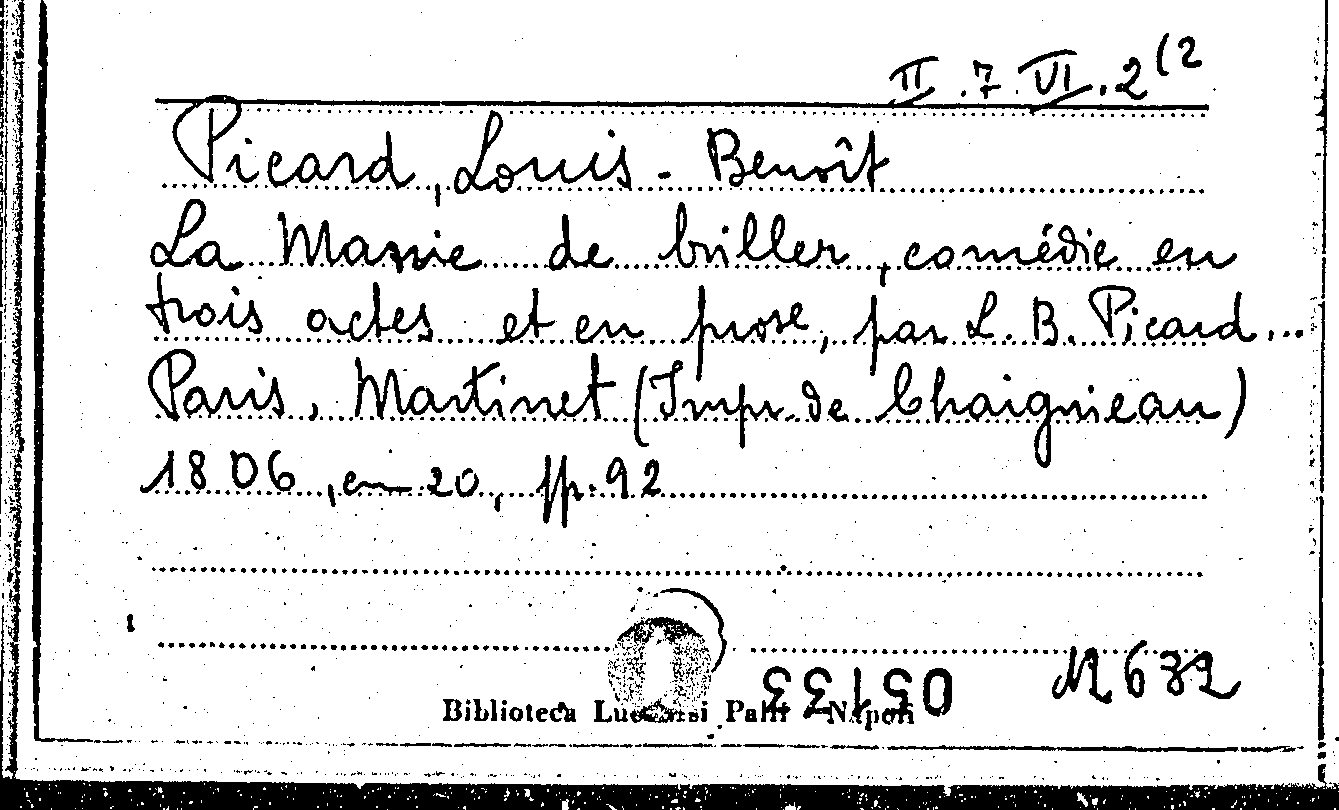 II.7.VI.2(2
Picard, Louis-Benoît
La Manie de briller, comédie en
trois actes et en prose, par L. B. Picard...
Paris, Martinet (Impr. de Chaigneau)
1806, en-20, pp. 92
Biblioteca Lucchesi Palli Napoli
12632